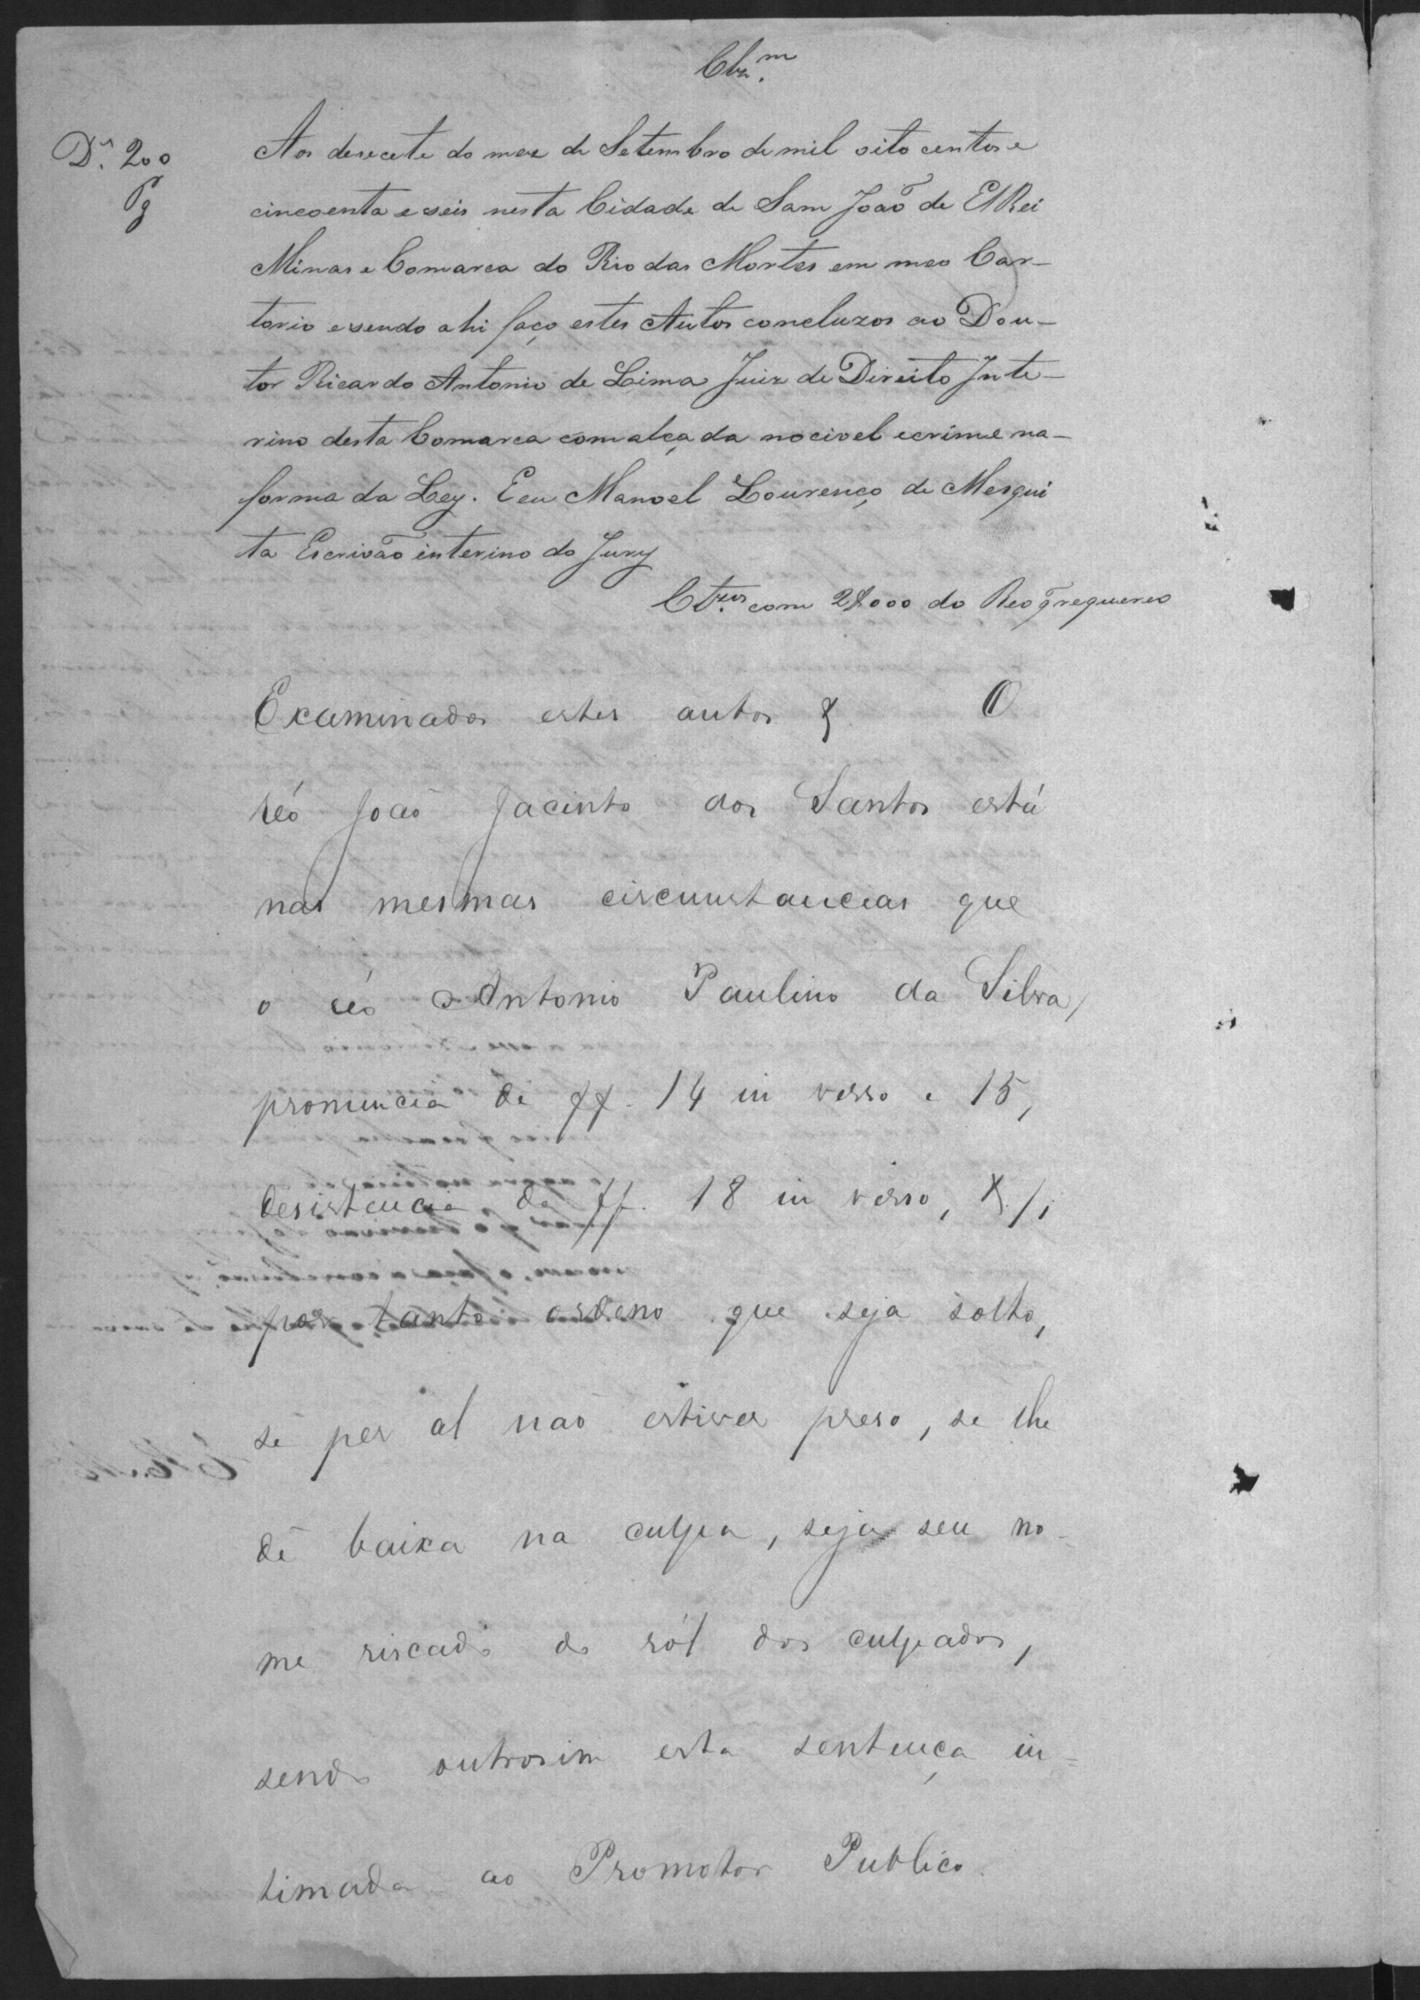 Clz.m
D.s 200
Pg
Aos desecete do mez de Setembro de mil oito centos e
cincoenta e seis nesta Cidade de Sam João de ElRei
Minas e Comarca do Rio das Mortes em meo Car-
torio e sendo ahi faço estes Autos concluzos ao Dou-
tor Ricardo Antonio de Lima Juiz de Direito Inte-
rino desta Comarca com alçada no civel e crime na-
forma da Ley. E eu Manoel Lourenço de Mesqui
ta Escrivão interino do Jury
Clzos com 2$000 do Reo q requereo
Examinados estes autos & O
réo João Jacinto dos Santos está
nas mesmas circunstancias que
o réo Antonio Paulino da Silva,
pronuncia de ff. 14 in verso e 15,
desistencia de ff. 18 in verso, &;
por tanto ordeno que seja solto,
se per al não estiver preso, se lhe
dê baixa na culpa, seja seu no-
me riscado do ról dos culpados,
sendo outrosim esta sentença in=
timada ao Promotor Publico.